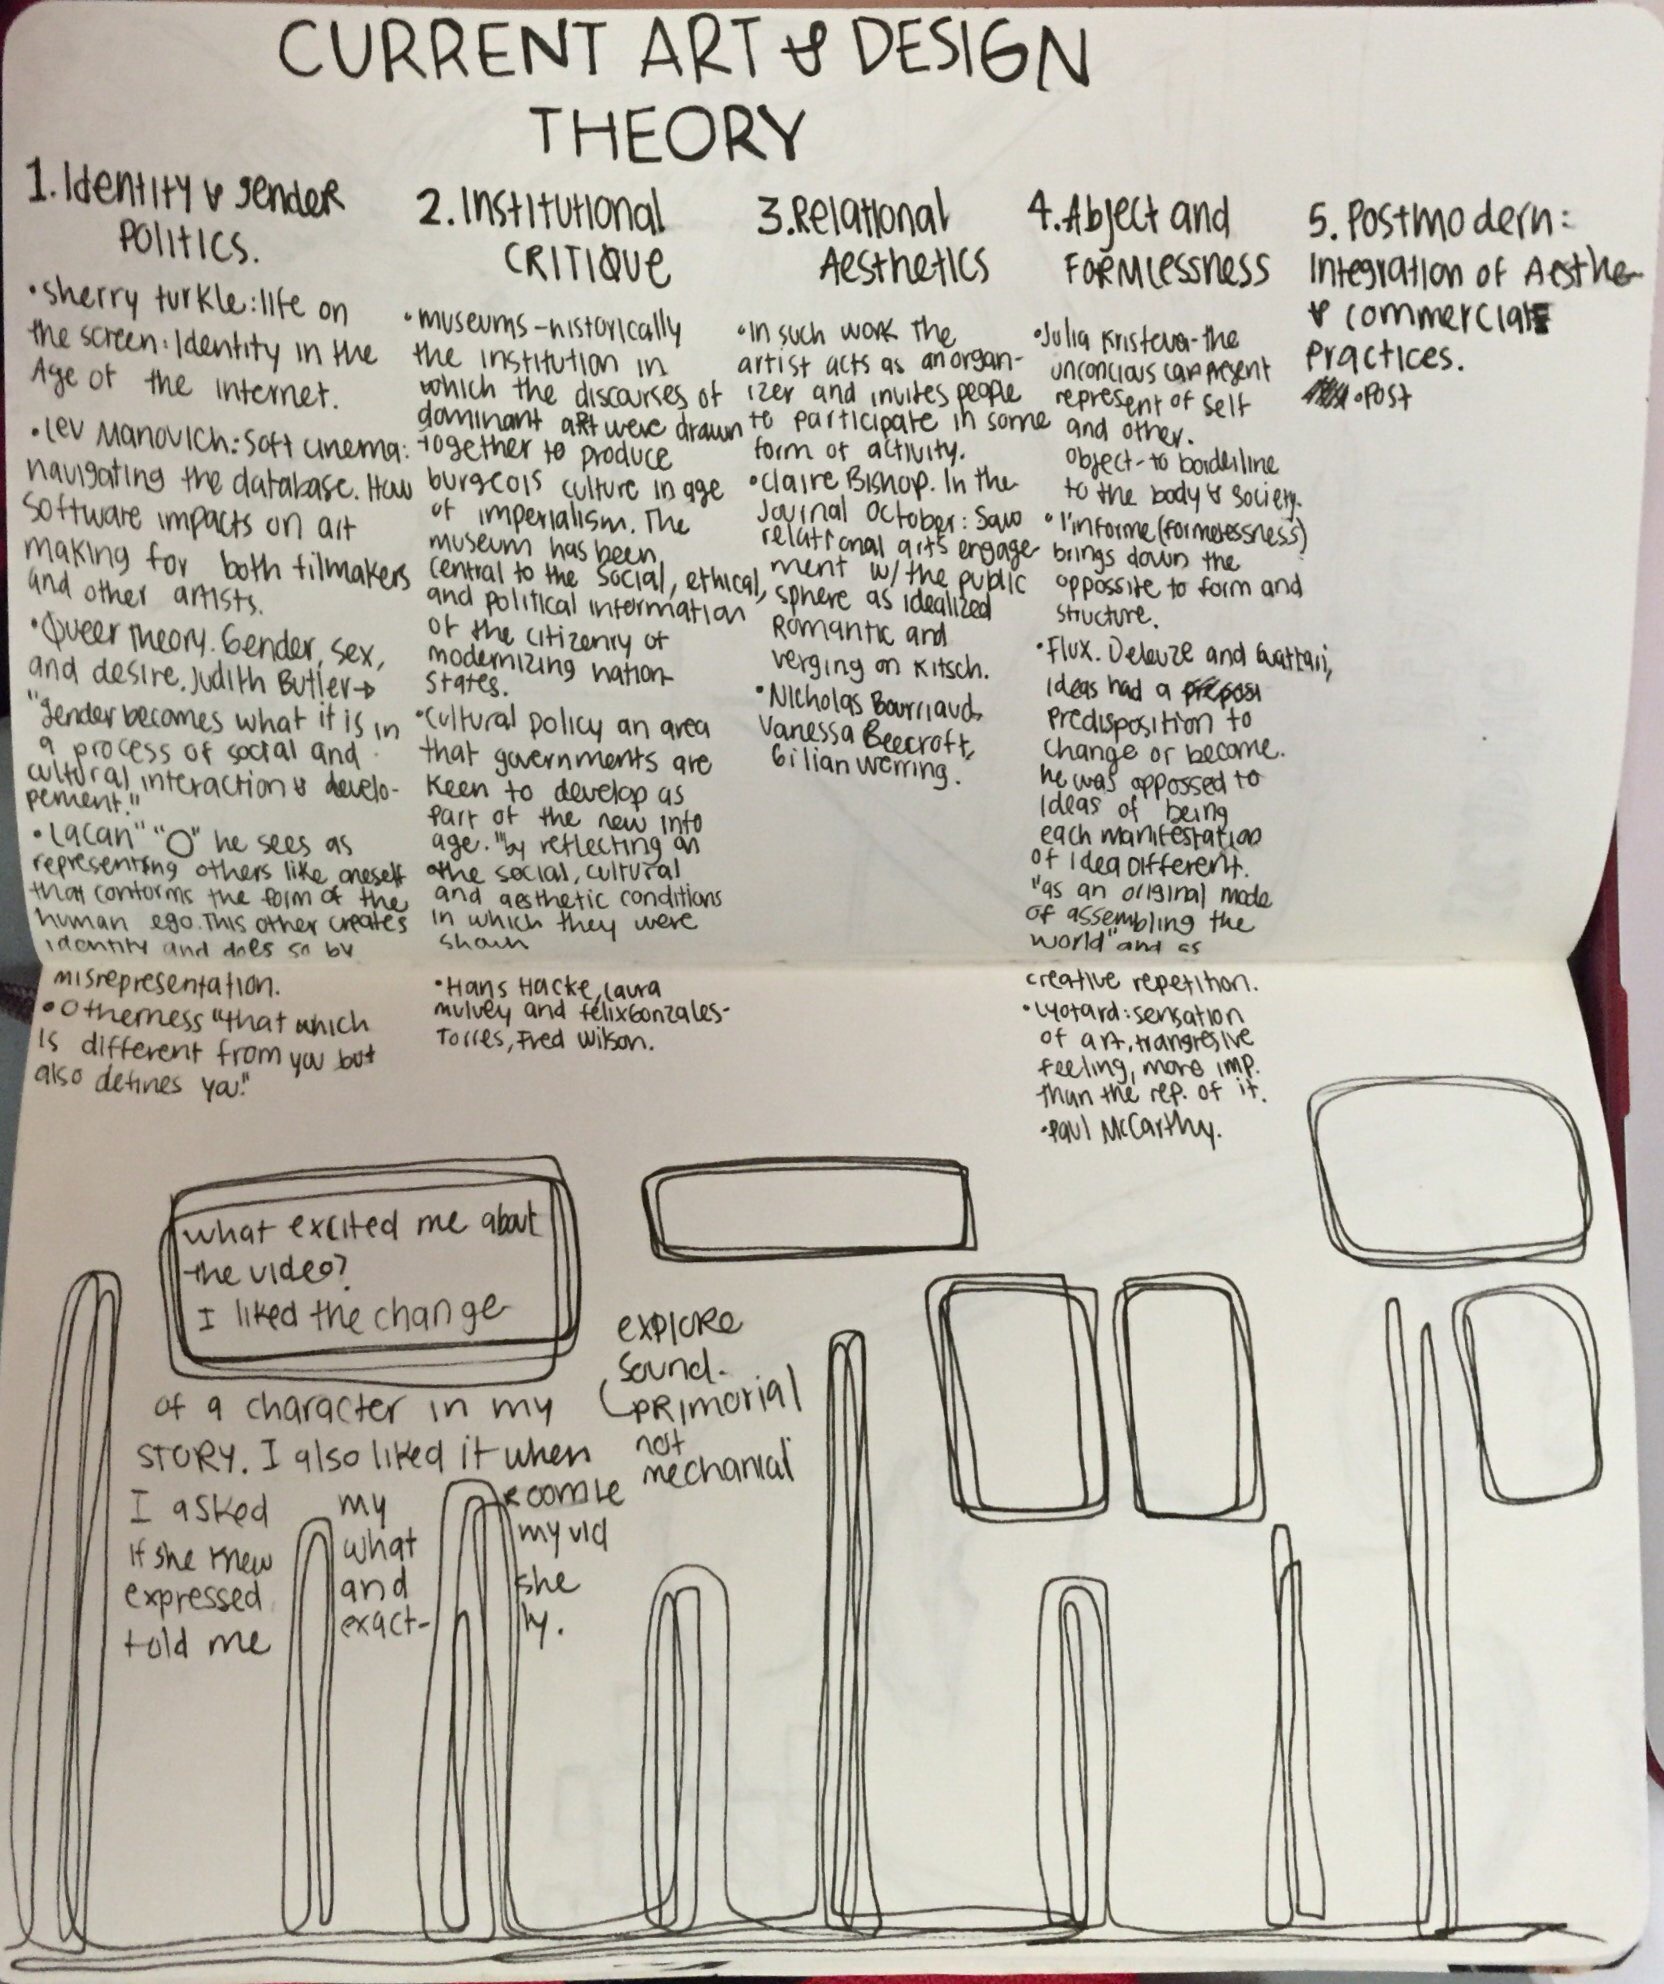 CURRENT ART & DESIGN
THEORY
1. Identity & gender
POLITICS.
• Sherry turkle: life on
the screen: Identity in the
Age of the internet.
• Lev Manovich: Soft cinema:
navigating the database. How
software impacts on art
making for both filmakers
and other artists.
• Queer Theory. Gender, sex,
and desire. Judith Butler→
"gender becomes what it is in
a process of social and
cultural interaction & develo-
pement."
• Lacan" "O" he sees as
representing others like oneself
that conforms the form of the
human ego. This other creates
identity and does so by
misrepresentation.
• Otherness "that which
is different from you but
also defines you."
2. Institutional
CRITIQUE
• museums - historically
the institution in
which the discourses of
dominant art were drawn
together to produce
burgeois culture in age
of imperialism. The
museum has been
central to the social, ethical,
and political information
of the citizenry of
modernizing nation-
states.
• Cultural policy an area
that governments are
keen to develop as
part of the new info
age. "by reflecting on
the social, cultural
and aesthetic conditions
in which they were
shown
• Hans Hacke, Laura
mulvey and felix Gonzales-
Torres, Fred Wilson.
3. Relational
Aesthetics
• In such work the
artist acts as an organ-
izer and invites people
to participate in some
form of activity.
• Claire Bishop. In the
Journal October: Saw
relational arts engage-
ment w/ the public
sphere as idealized
Romantic and
verging on kitsch.
• Nicholas Bourriaud,
Vanessa Beecroft,
Gilian Werring.
4. Abject and
FORMLESSNESS
• Julia Kristeva - the
unconcious can present
represent of self
and other.
object - to borderline
to the body & society.
• l'informe (formelessness)
brings down the
oppossite to form and
structure.
• Flux. Deleuze and Guattari,
ideas had a
predisposition to
change or become.
he was oppossed to
ideas of being
each manifestation
of idea different.
"as an original mode
of assembling the
world" and as
creative repetition.
• Lyotard: sensation
of art, trangresive
feeling, more imp.
than the rep. of it.
• Paul McCarthy.
5. Postmodern:
Integration of Aesthe-
& commercial
Practices.
• Post
what excited me about
the video?
I liked the change
of a character in my
STORY. I also liked it when
I asked my roomie
if she knew what my vid
expressed and she
told me exact-ly.
explore
sound.
primorial
not
mechanial